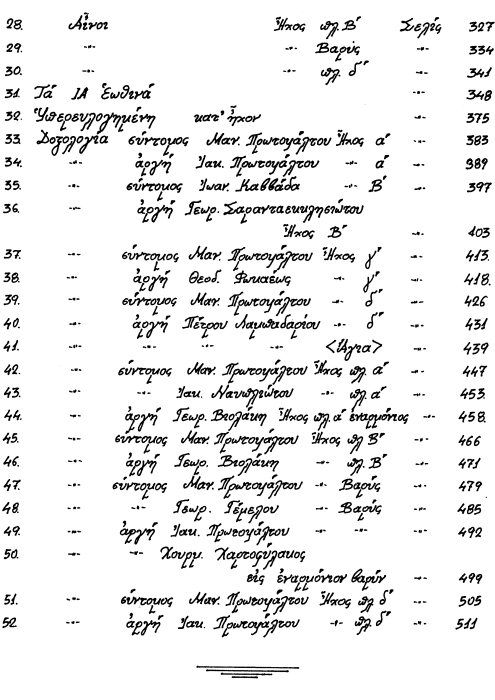 28. Αἶνοι Ἦχος πλ. Β΄ Σελίς 327
29. -"- -"- Βαρύς -"- 334
30. -"- -"- πλ. δ΄ -"- 341
31. Τά ΙΑ Ἑωθινά -"- 348
32. Ὑπερευλογημένη κατ' ἦχον -"- 375
33. Δοξολογία σύντομος Μαν. Πρωτοψάλτου Ἦχος α΄ -"- 383
34. -"- ἀργή Ἰακ. Πρωτοψάλτου -"- α΄ -"- 389
35. -"- σύντομος Ἰωαν. Καββάδα -"- Β΄ -"- 397
36. -"- ἀργή Γεωρ. Σαρανταεκκλησιώτου
Ἦχος Β΄ -"- 103
37. -"- σύντομος Μαν. Πρωτοψάλτου Ἦχος γ΄ -"- 413.
38. -"- ἀργή Θεοδ. Φωκαέως -"- γ΄ -"- 418.
39. -"- σύντομος Μαν. Πρωτοψάλτου -"- δ΄ -"- 426
40. -"- ἀργή Πέτρου Λαμπαδαρίου -"- δ΄ -"- 431
41. -"- -"- -"- -"- <Ἅγια> -"- 439
42. -"- σύντομος Μαν. Πρωτοψάλτου Ἦχος πλ. α΄ -"- 447
43. -"- -"- Ἰακ. Ναυπλιώτου -"- πλ. α΄ -"- 453.
44. -"- ἀργή Γεωρ. Βιολάκη Ἦχος πλ. α΄ ἐναρμόνιος -"- 458.
45. -"- σύντομος Μαν. Πρωτοψάλτου Ἦχος πλ Β΄ -"- 466
46. -"- ἀργή Γεωρ. Βιολάκη -"- πλ. Β΄ -"- 471
47. -"- σύντομος Μαν. Πρωτοψάλτου -"- Βαρύς -"- 479
48. -"- -"- Γεωρ. Γέμελου -"- Βαρύς -"- 485
49. -"- ἀργή Ἰακ. Πρωτοψάλτου -"- -"- -"- 492
50. -"- -"- Χουρμ. Χαρτοφύλακος
εἰς ἐναρμόνιον βαρύν -"- 499
51. -"- σύντομος Μαν. Πρωτοψάλτου Ἦχος πλ δ΄ -"- 505
52 -"- ἀργή Ἰακ. Πρωτοψάλτου -"- πλ. δ΄ -"- 511